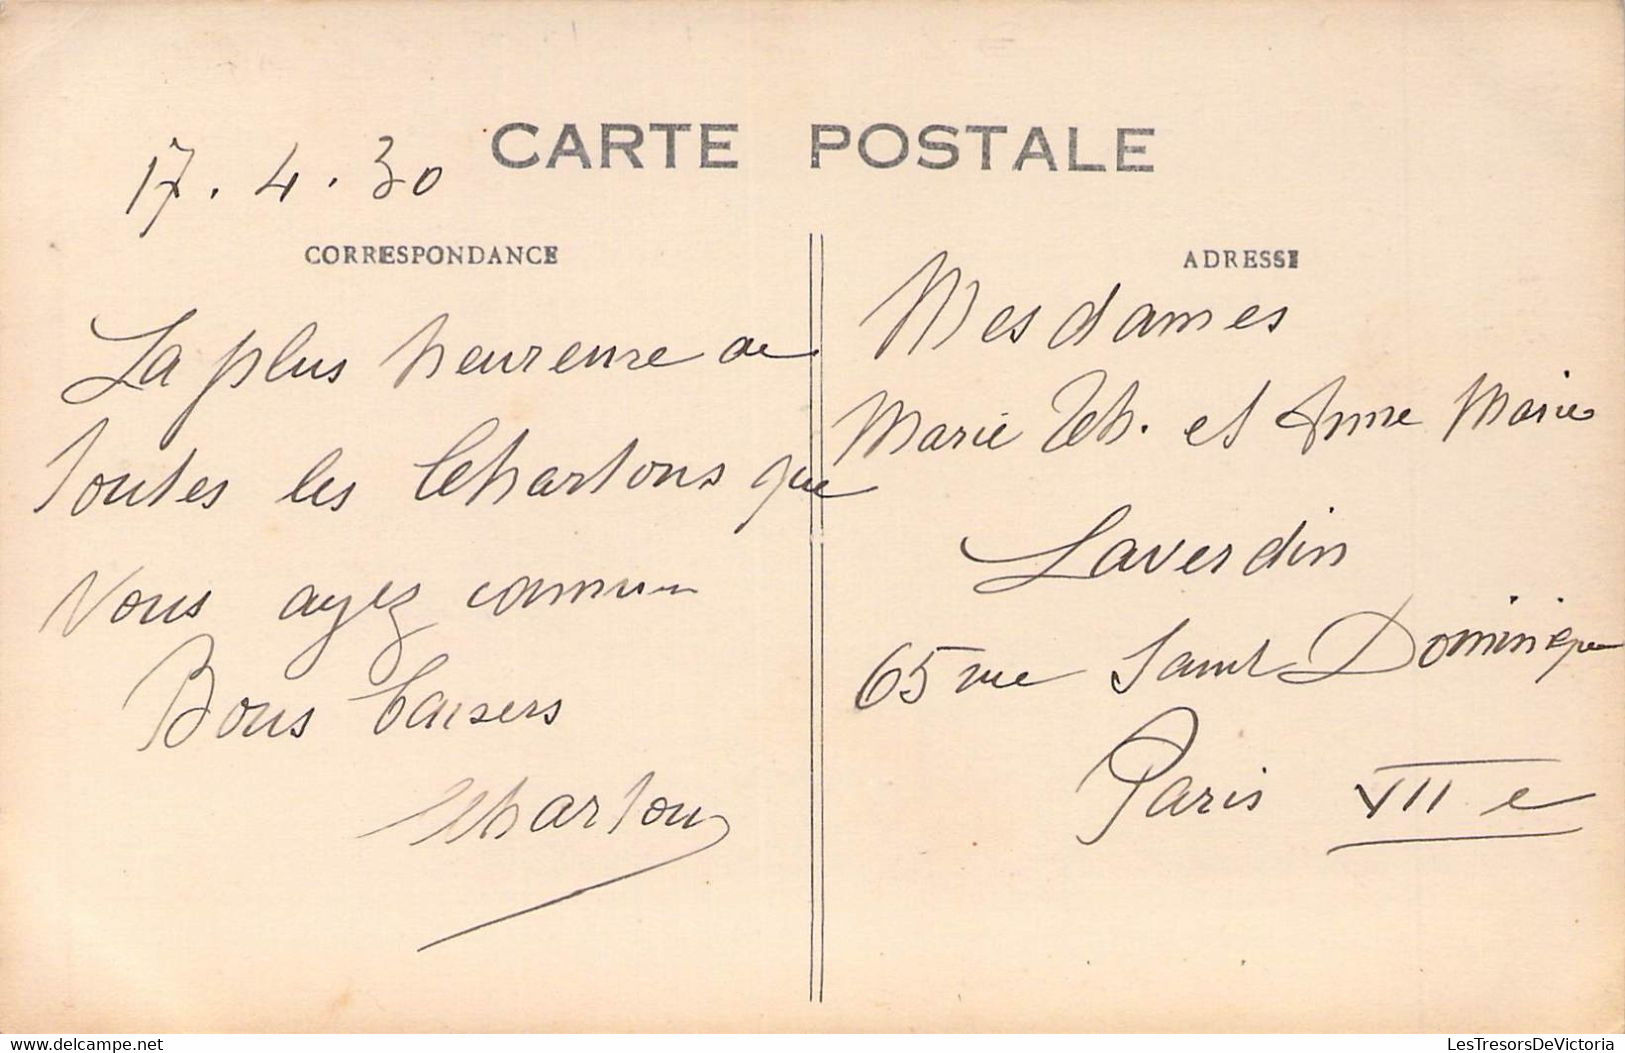 CARTE POSTALE
17.4.30
CORRESPONDANCE
La plus heureuse de
toutes les Charlons que
Vous ayez connu
Bons baisers
Charlou
ADRESSE
Mesdames
Marie Th. et Anne Marie
Laverdin
65 rue Saint Dominique
Paris VII e
www.delcampe.net
LesTresorsDeVictoria